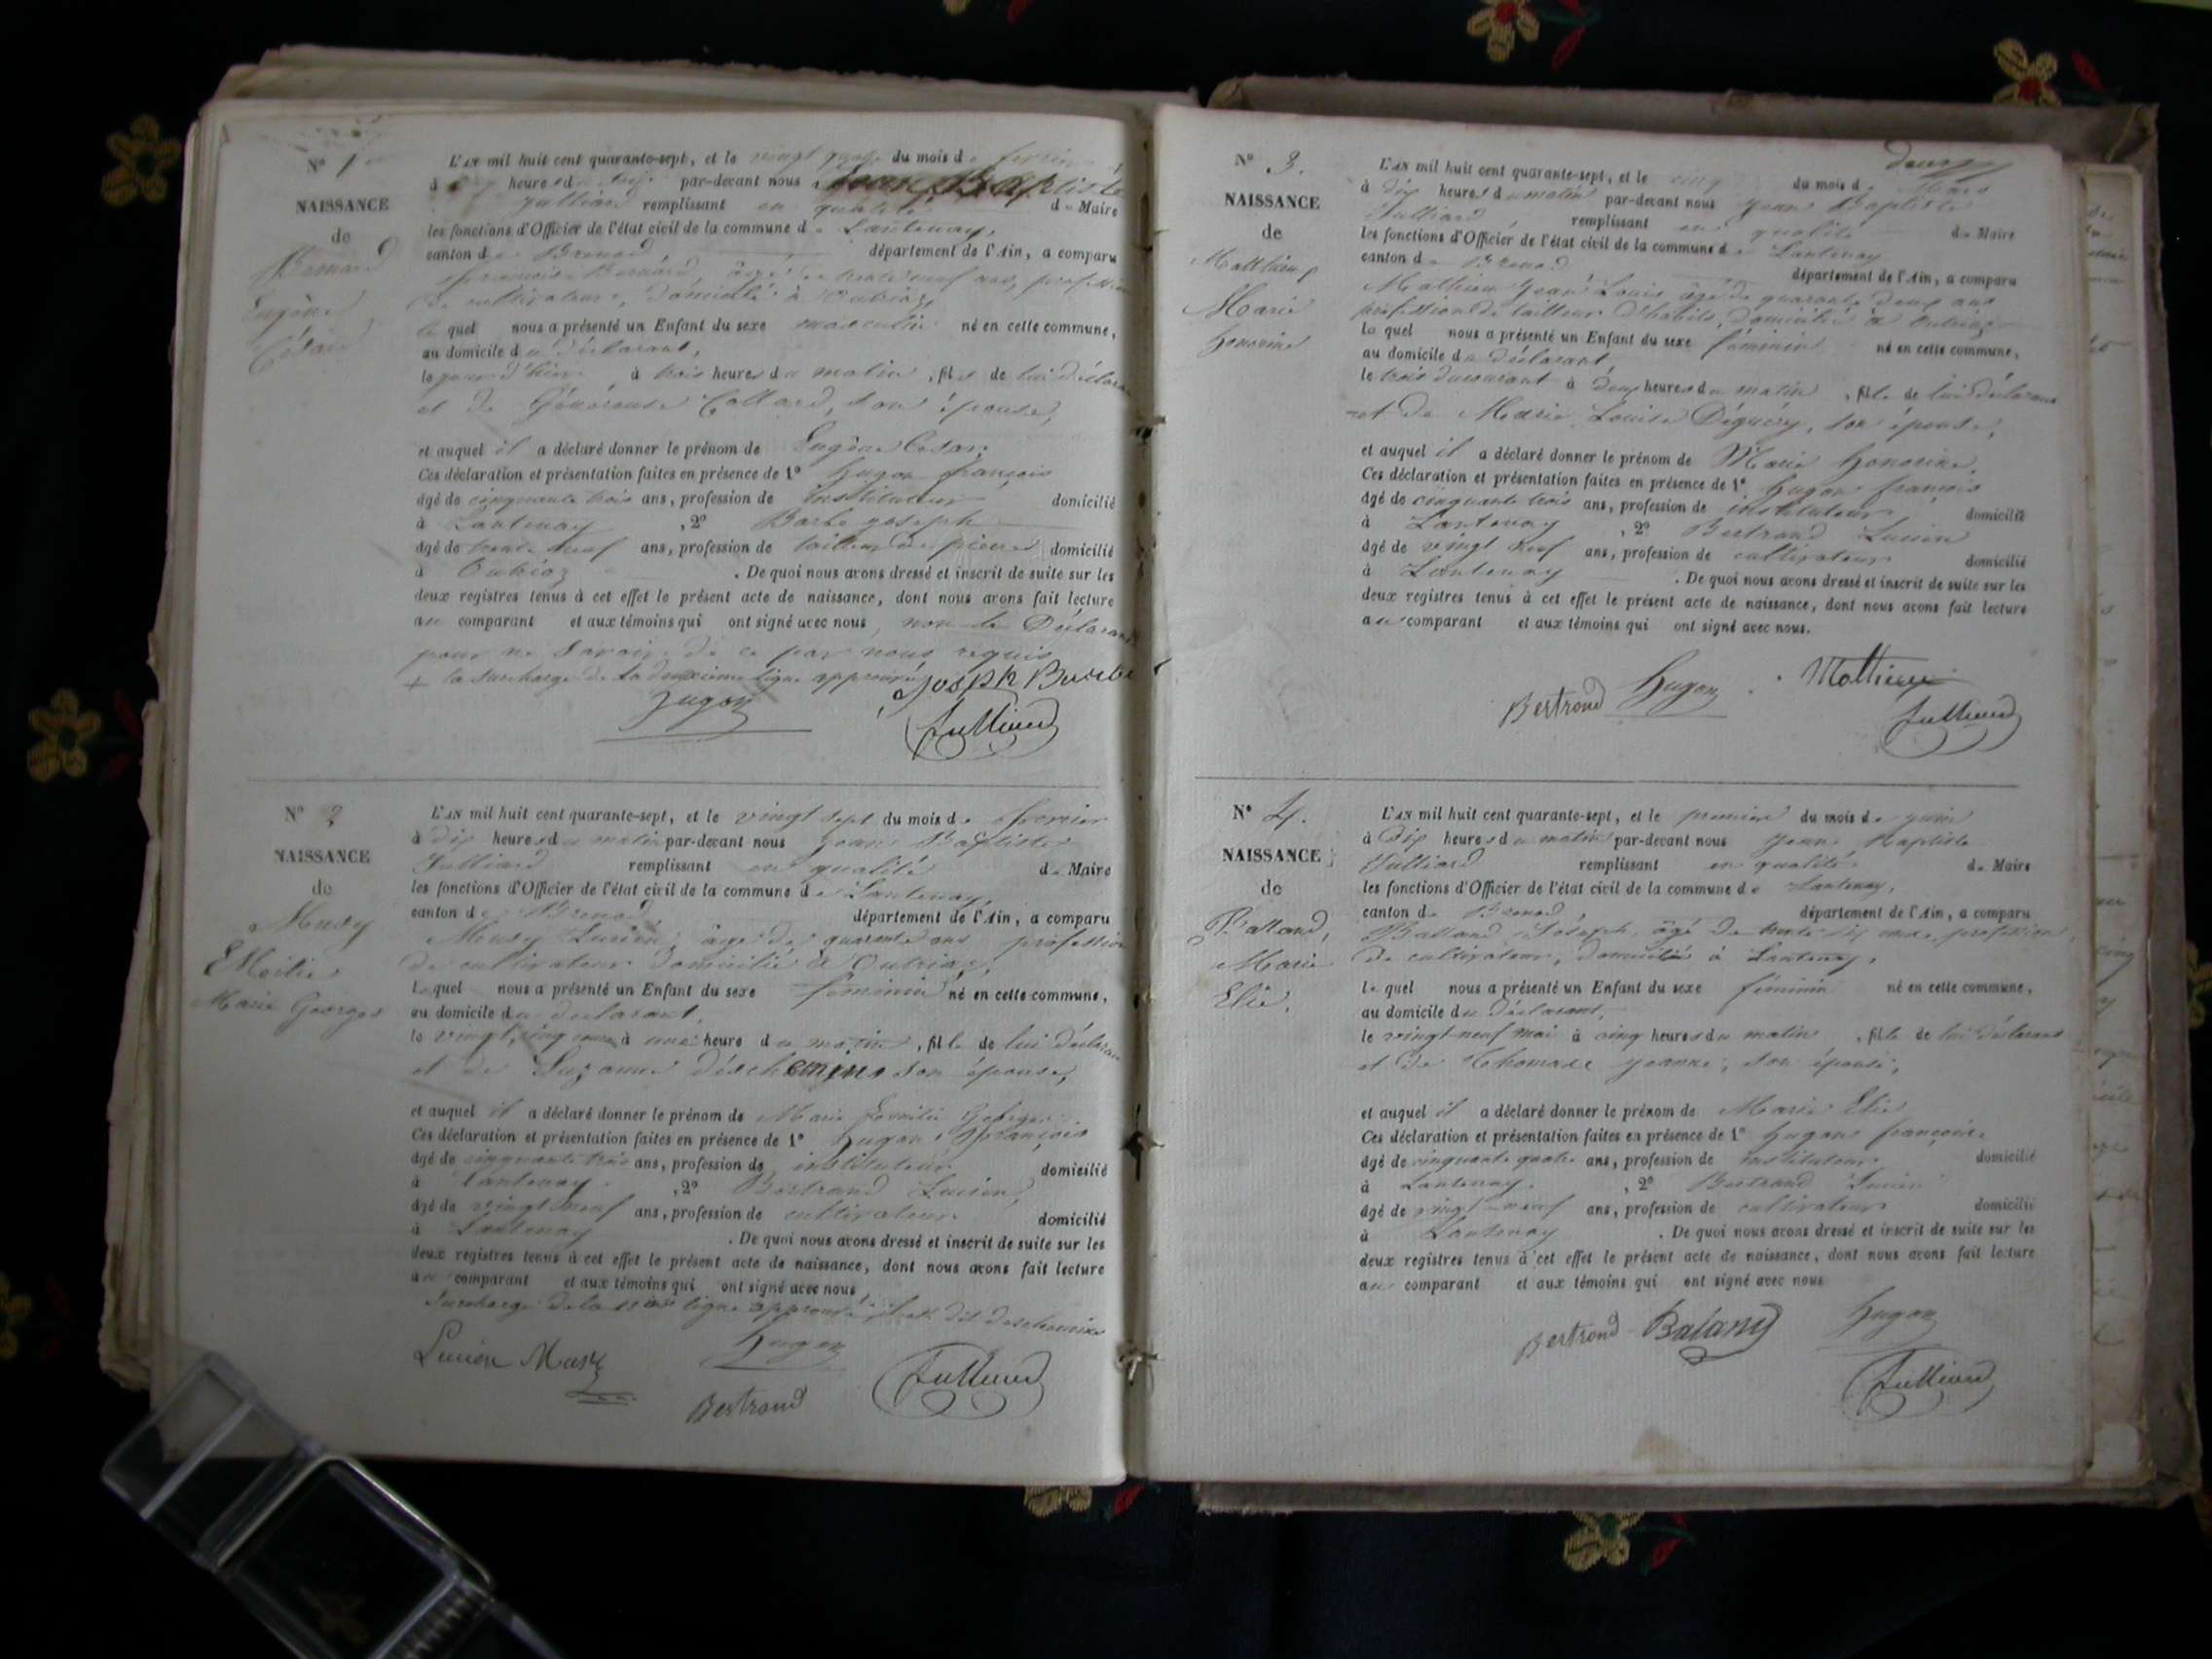 Nº 1
NAISSANCE
de
Bernard
Eugène
César
L'AN mil huit cent quarante-sept, et le vingt quatre du mois de février
à heures du par-devant nous Jean Baptiste
Julliard remplissant en qualité de Maire
les fonctions d'Officier de l'état civil de la commune de Lantenay,
canton de Brenod département de l'Ain, a comparu
François Bernard, âgé de trente neuf ans, profession
de cultivateur, domicilié à Outriaz,
le quel nous a présenté un Enfant du sexe masculin né en cette commune,
au domicile du déclarant,
le jour d'hier à trois heures du matin, fils de lui déclarant
et de Généreuse Collard, son épouse,
et auquel il a déclaré donner le prénom de Eugène César
Ces déclaration et présentation faites en présence de 1º Hugon françois
âgé de cinquante trois ans, profession de instituteur domicilié
à Lantenay, 2º Barbe joseph
âgé de trente neuf ans, profession de tailleur de pierres domicilié
à Outriaz. De quoi nous avons dressé et inscrit de suite sur les
deux registres tenus à cet effet le présent acte de naissance, dont nous avons fait lecture
au comparant et aux témoins qui ont signé avec nous, non le Déclarant
pour ne savoir de ce par nous requis
+ la surcharge de la deuxième ligne approuvée Joseph Barbe
hugon
Julliard
Nº 2
NAISSANCE
de
Musy
Emilie
Marie Georges
L'AN mil huit cent quarante-sept, et le vingt sept du mois de février
à dix heures du matin par-devant nous Jean Baptiste
Julliard remplissant en qualité de Maire
les fonctions d'Officier de l'état civil de la commune de Lantenay,
canton de Brenod département de l'Ain, a comparu
Musy Lucien, âgé de quarante ans profession
de cultivateur domicilié à Outriaz,
Le quel nous a présenté un Enfant du sexe féminin né en cette commune,
au domicile du déclarant,
le vingt cinq à une heure du matin, fille de lui déclarant
et de Suzanne deschemins son épouse,
et auquel il a déclaré donner le prénom de Marie Emilie Georges
Ces déclaration et présentation faites en présence de 1º Hugon François
âgé de cinquante trois ans, profession de instituteur domicilié
à Lantenay, 2º Bertrand Lucien,
âgé de vingt neuf ans, profession de cultivateur domicilié
à Lantenay. De quoi nous avons dressé et inscrit de suite sur les
deux registres tenus à cet effet le présent acte de naissance, dont nous avons fait lecture
au comparant et aux témoins qui ont signé avec nous,
Surcharge de la ligne approuvée dit deschemins
Lucien Musy
hugon
Bertrand
Julliard
deux
Nº 3.
NAISSANCE
de
Matthieu
Marie
honorine
L'AN mil huit cent quarante-sept, et le cinq du mois de Mars
à dix heures du matin par-devant nous Jean Baptiste
Julliard remplissant en qualité de Maire
les fonctions d'Officier de l'état civil de la commune de Lantenay
canton de Brenod département de l'Ain, a comparu
Mathieu Jean Louis âgé de quarante deux ans
profession de tailleur d'habits, domicilié à Outriaz
le quel nous a présenté un Enfant du sexe féminin né en cette commune,
au domicile du déclarant,
le trois du courant à deux heures du matin, fille de lui déclarant
et de Marie Louise Déguéry, son épouse,
et auquel il a déclaré donner le prénom de Marie honorine.
Ces déclaration et présentation faites en présence de 1º hugon françois
âgé de cinquante trois ans, profession de instituteur domicilié
à Lantenay, 2º Bertrand Lucien
âgé de vingt neuf ans, profession de cultivateur domicilié
à Lantenay. De quoi nous avons dressé et inscrit de suite sur les
deux registres tenus à cet effet le présent acte de naissance, dont nous avons fait lecture
au comparant et aux témoins qui ont signé avec nous.
Bertrand hugon Matthieu
Julliard
Nº 4.
NAISSANCE
de
Balland,
Marie
Elié,
L'AN mil huit cent quarante-sept, et le premier du mois de juin
à dix heures du matin par-devant nous Jean Baptiste
Julliard remplissant en qualité de Maire
les fonctions d'Officier de l'état civil de la commune de Lantenay,
canton de Brenod département de l'Ain, a comparu
Balland Joseph âgé de trente six ans, profession
de cultivateur, domicilié à Lantenay,
le quel nous a présenté un Enfant du sexe féminin né en cette commune,
au domicile du déclarant,
le vingt-neuf mai à cinq heures du matin, fille de lui déclarant
et de Thomasse jeanne, son épouse,
et auquel il a déclaré donner le prénom de Marie Elié
Ces déclaration et présentation faites en présence de 1º hugon françois
âgé de cinquante quatre ans, profession de instituteur domicilié
à Lantenay, 2º Bertrand Lucien
âgé de vingt-neuf ans, profession de cultivateur domicilié
à Lantenay. De quoi nous avons dressé et inscrit de suite sur les
deux registres tenus à cet effet le présent acte de naissance, dont nous avons fait lecture
au comparant et aux témoins qui ont signé avec nous
Bertrand Baland hugon
Julliard